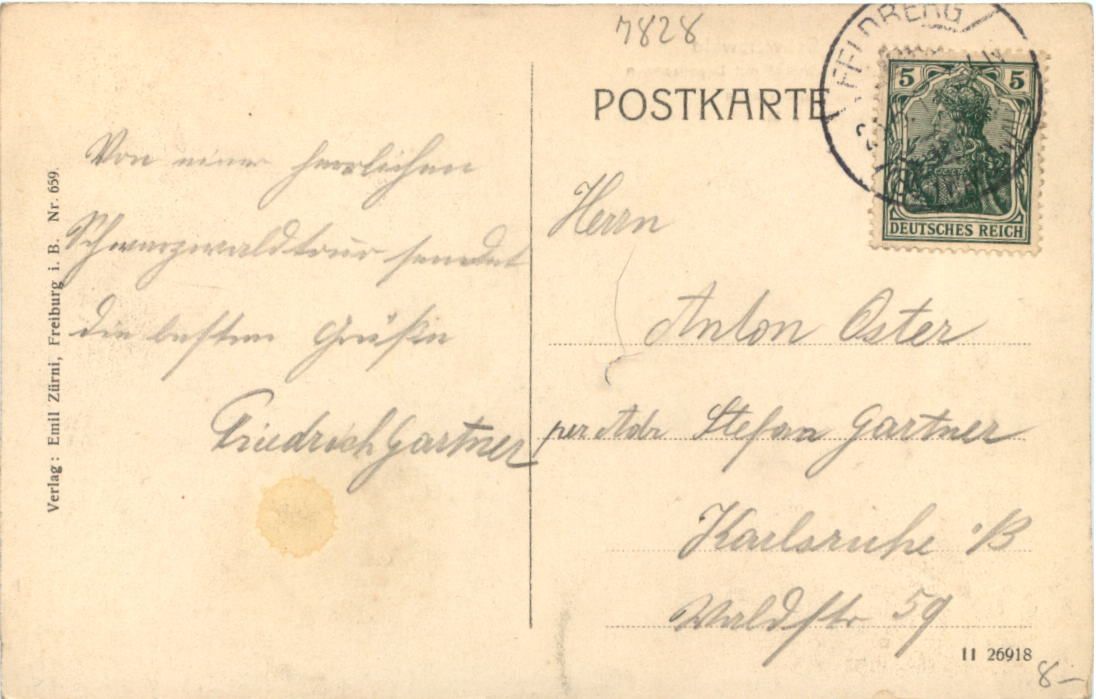 7828
POSTKARTE
FELDBERG
5 5
DEUTSCHES REICH
Von einer herrlichen
Schwarzwaldtour sendet
die besten Grüße
Friedrich Gartner
Herrn
Anton Oster
per Adr Stefan Gartner
Karlsruhe i/B
Waldstr 59
Verlag: Emil Zürni, Freiburg i. B. Nr. 659.
11 26918
8-